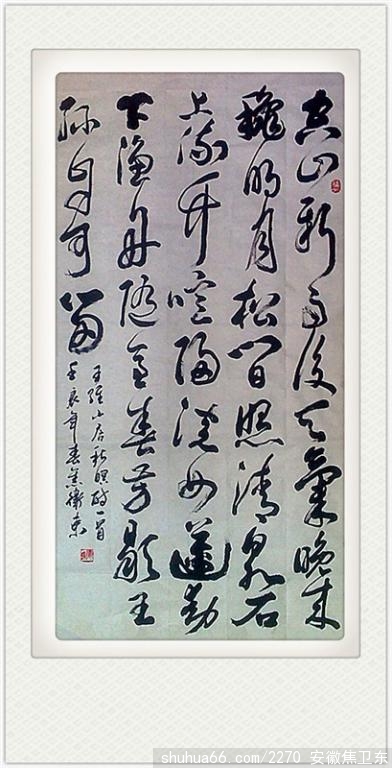 空山新雨後天氣晚來
秋明月松間照清泉石
上流竹喧歸浣女蓮動
下漁舟隨意春芳歇王
孫自可留
王維山居秋暝詩一首
壬辰年春焦衛東
shuhua66.com/2270 安徽焦卫东